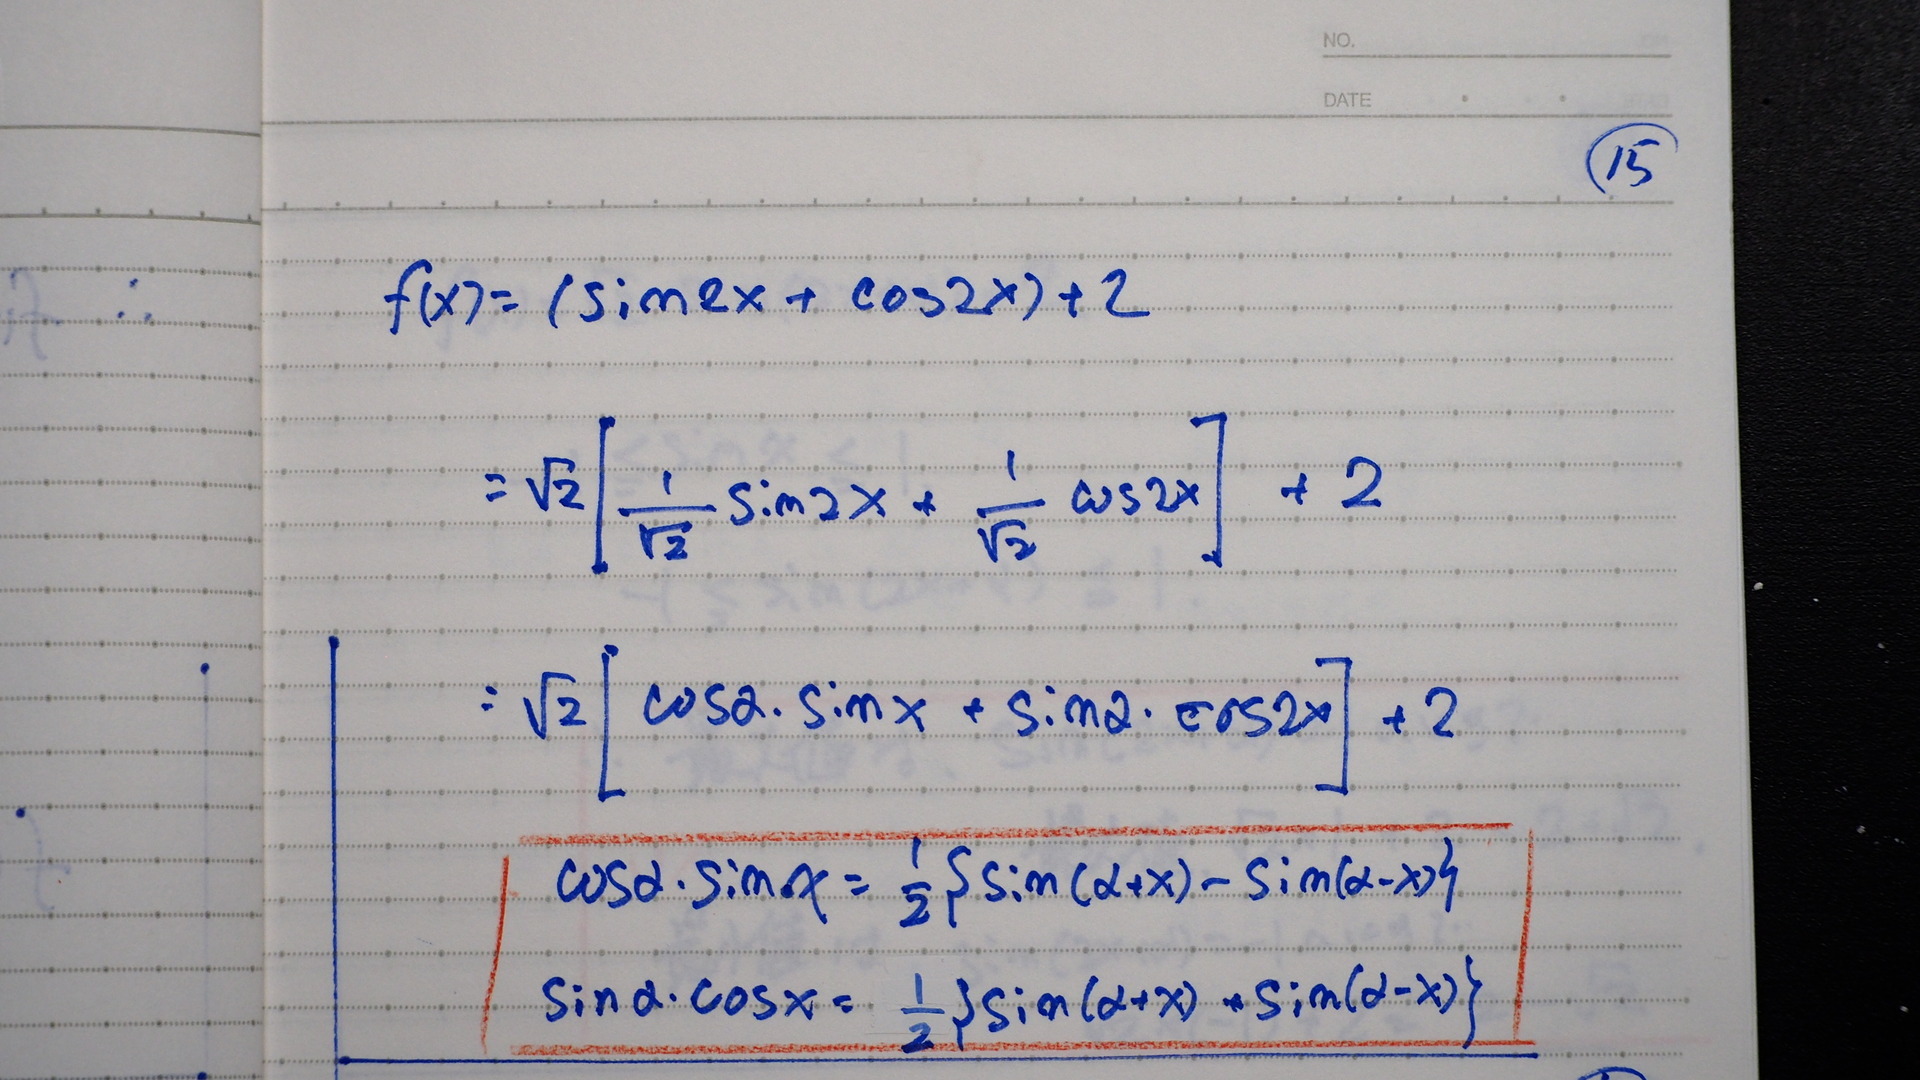 NO.
DATE
15
f(x)= (sin2x + cos2x)+2
= √2[1/√2 sin2x + 1/√2 cos2x] + 2
= √2[cosα・sinx + sinα・cos2x] + 2
cosα・sinx = 1/2{sin(α+x) - sin(α-x)}
sinα・cosx = 1/2{sin(α+x) + sin(α-x)}